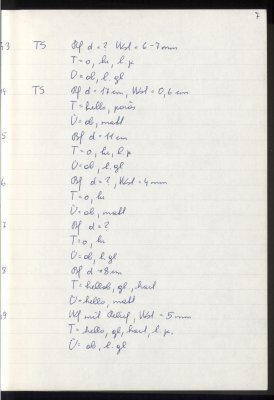 7
3 TS Bf d = ? Wst = 6-7 mm
T = o, hr, l. p
Ü = ob, l. gl
4 TS Bf d = 17 cm, Wst = 0,6 cm
T = hello, porös
Ü = ob, matt
5 Bf d = 11 cm
T = o, hr, l. p
Ü = ob, l. gl
6 Bf d = ?, Wst = 4 mm
T = o, hr
Ü = ob, matt
7 Bf d = ?
T = o, hr
Ü = ob, l. gl
8 Bf d = 8 cm
T = hellob, gl, hart
Ü = hello, matt
9 Wf mit Relief, Wst = 5 mm
T = hello, gl, hart, l. p.
Ü = ob, l. gl